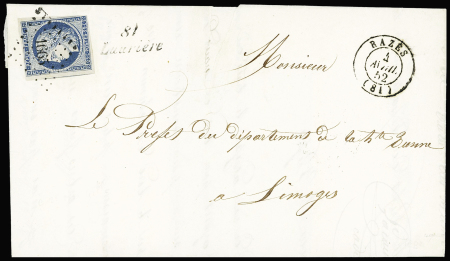 81
Laurière
RAZÈS
4
AVRIL
52
(81)
Monsieur
Le Préfet du département de la hte Vienne
a Limoges